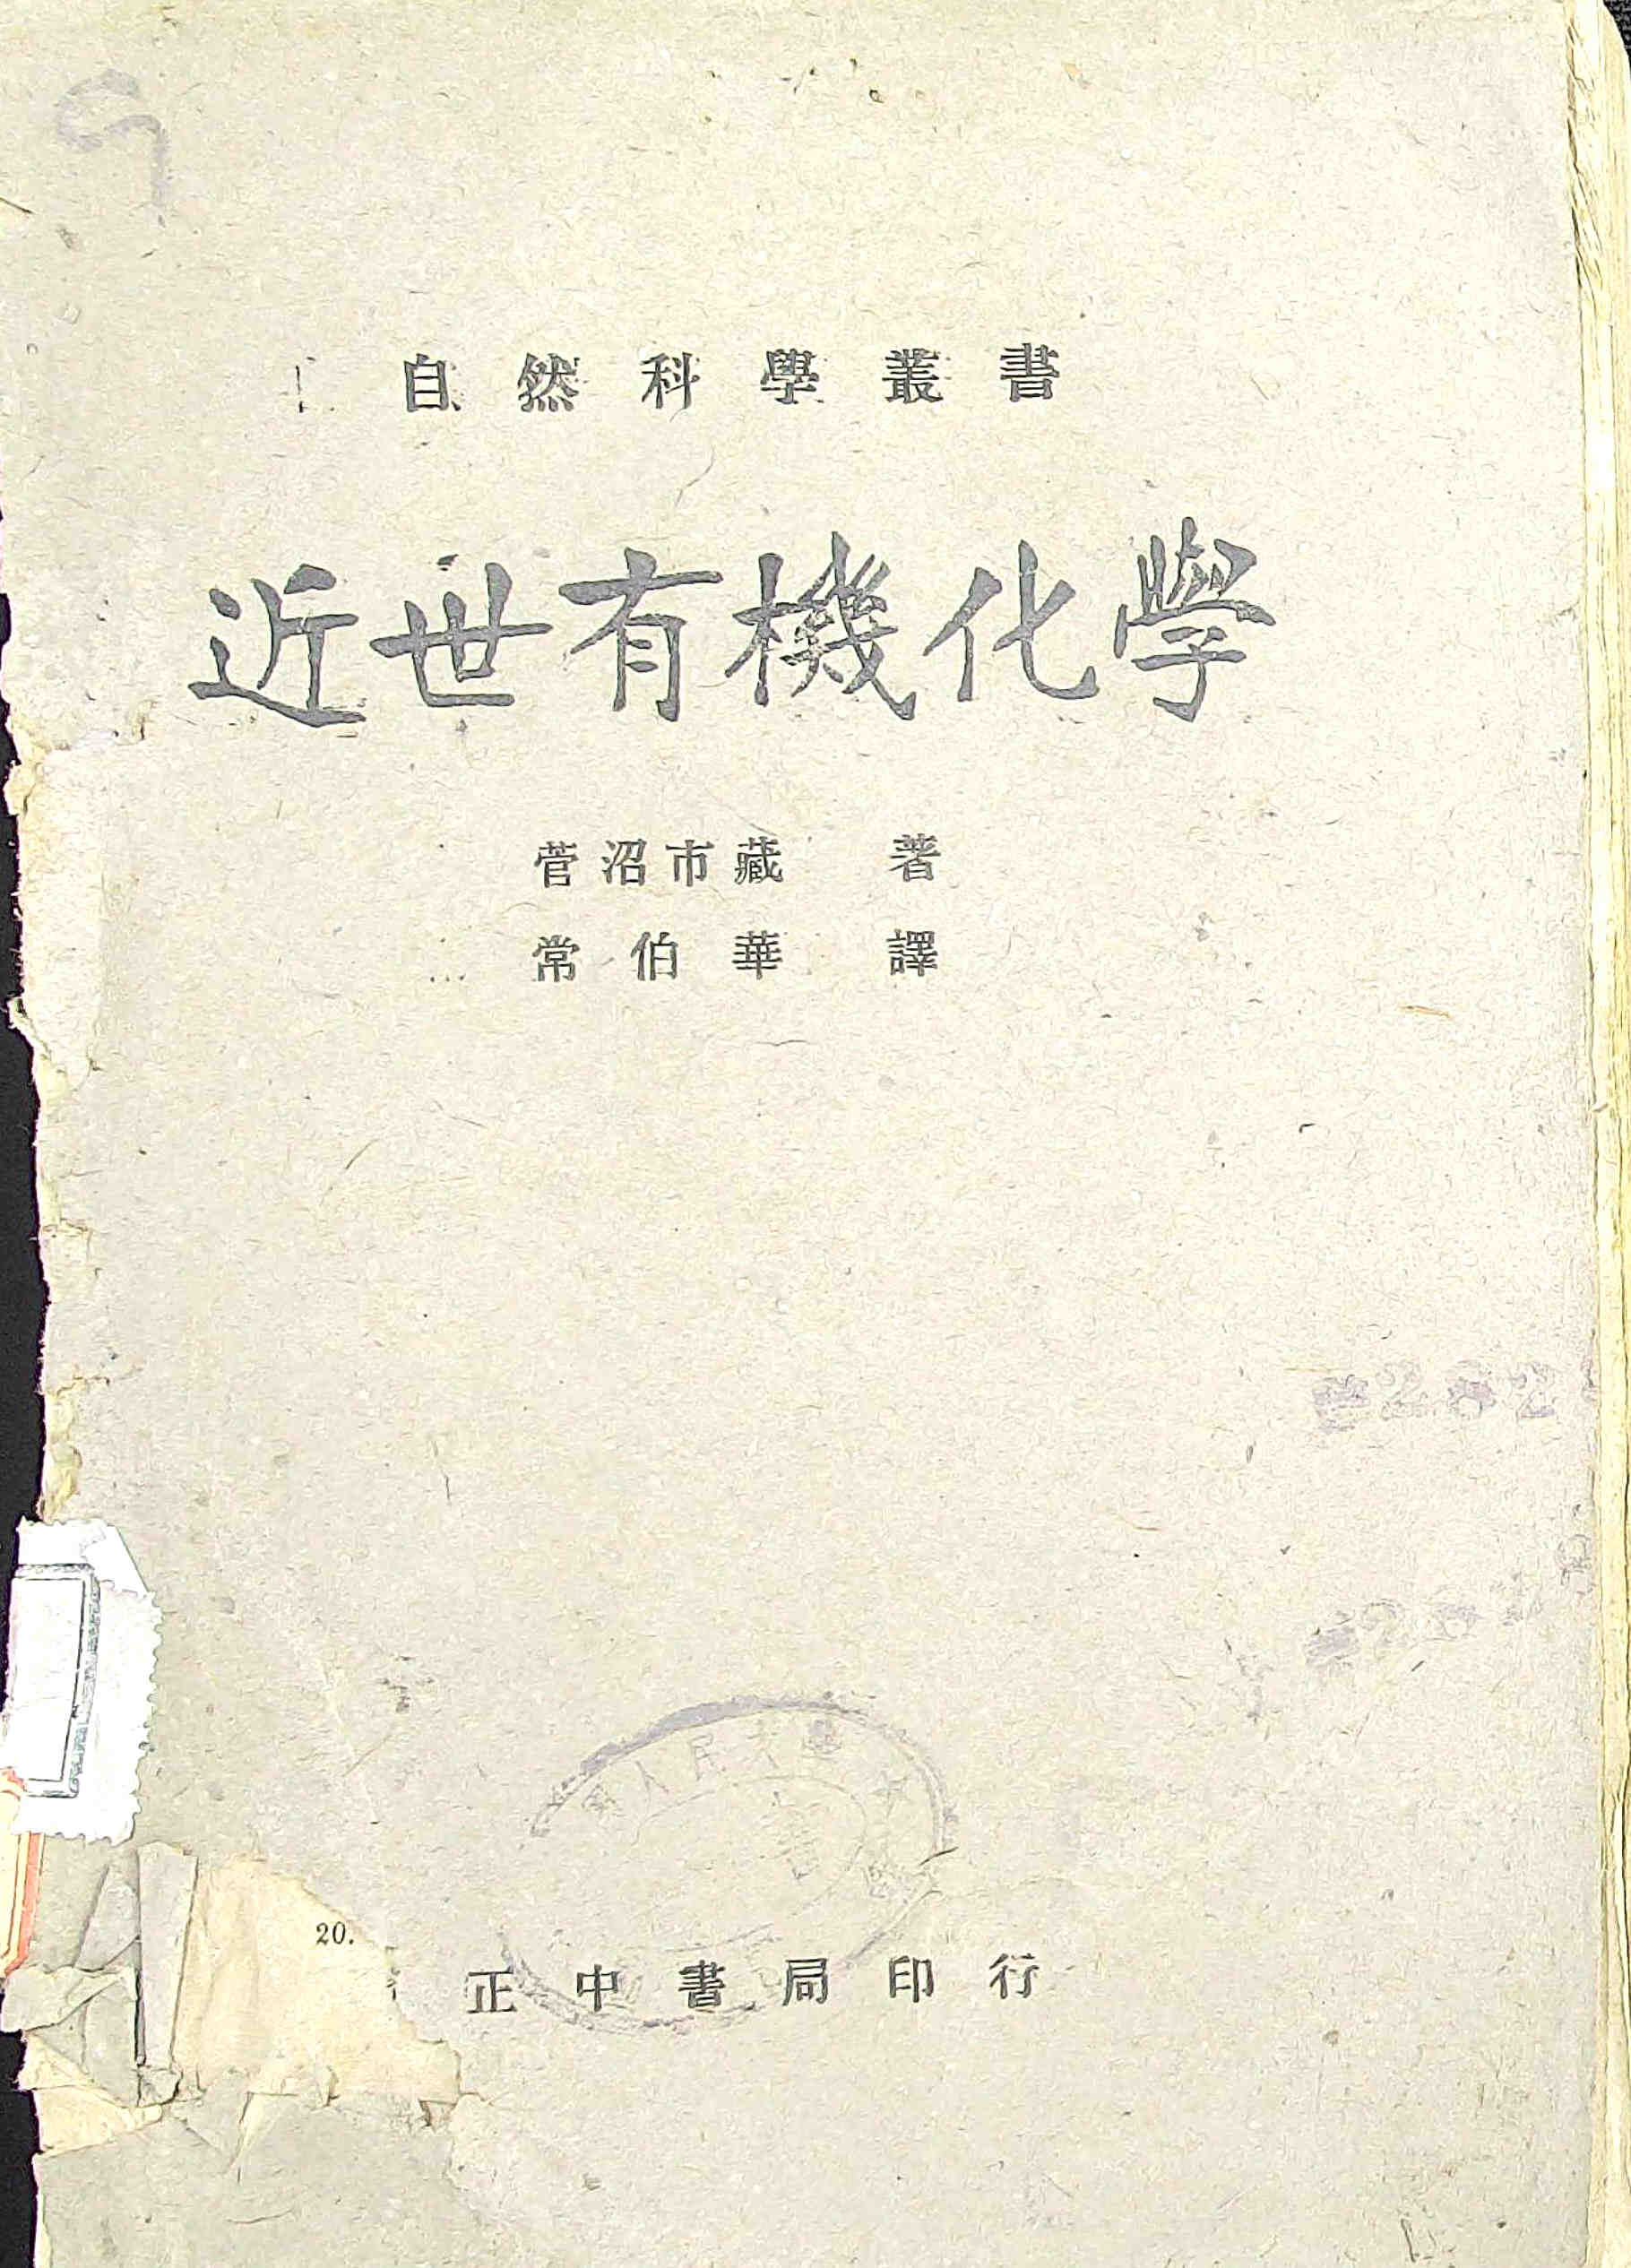 自然科學叢書
近世有機化學
菅沼市藏 著
常伯華 譯
人民大學
20.
正中書局印行